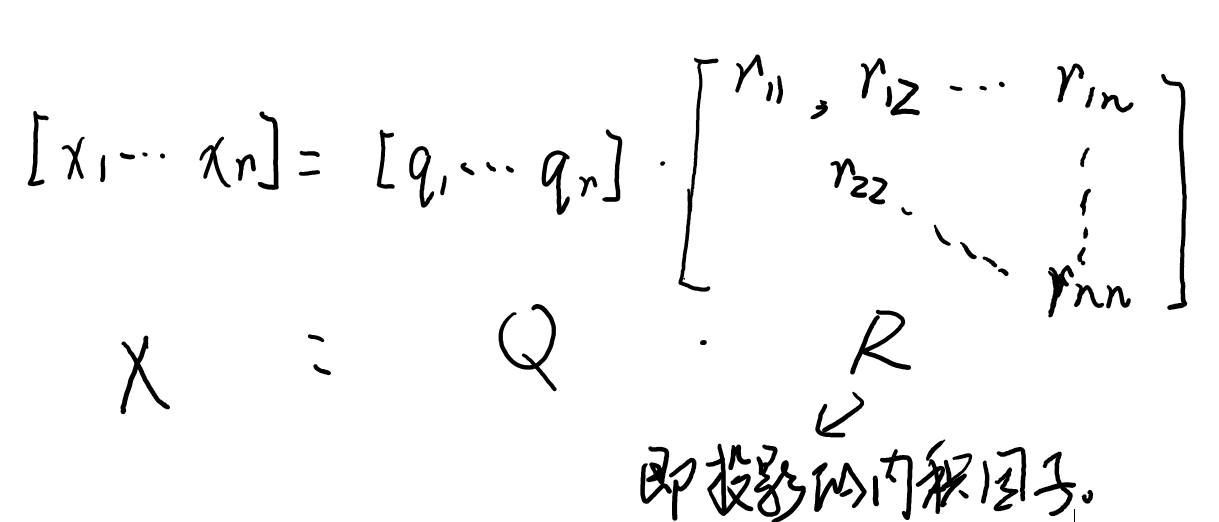 [x₁ ⋯ xₙ] = [q₁ ⋯ qₙ] · [r₁₁, r₁₂ ⋯ r₁ₙ
r₂₂ ⋱ ⋮
rₙₙ]
X = Q · R
↙
即投影的内积因子。